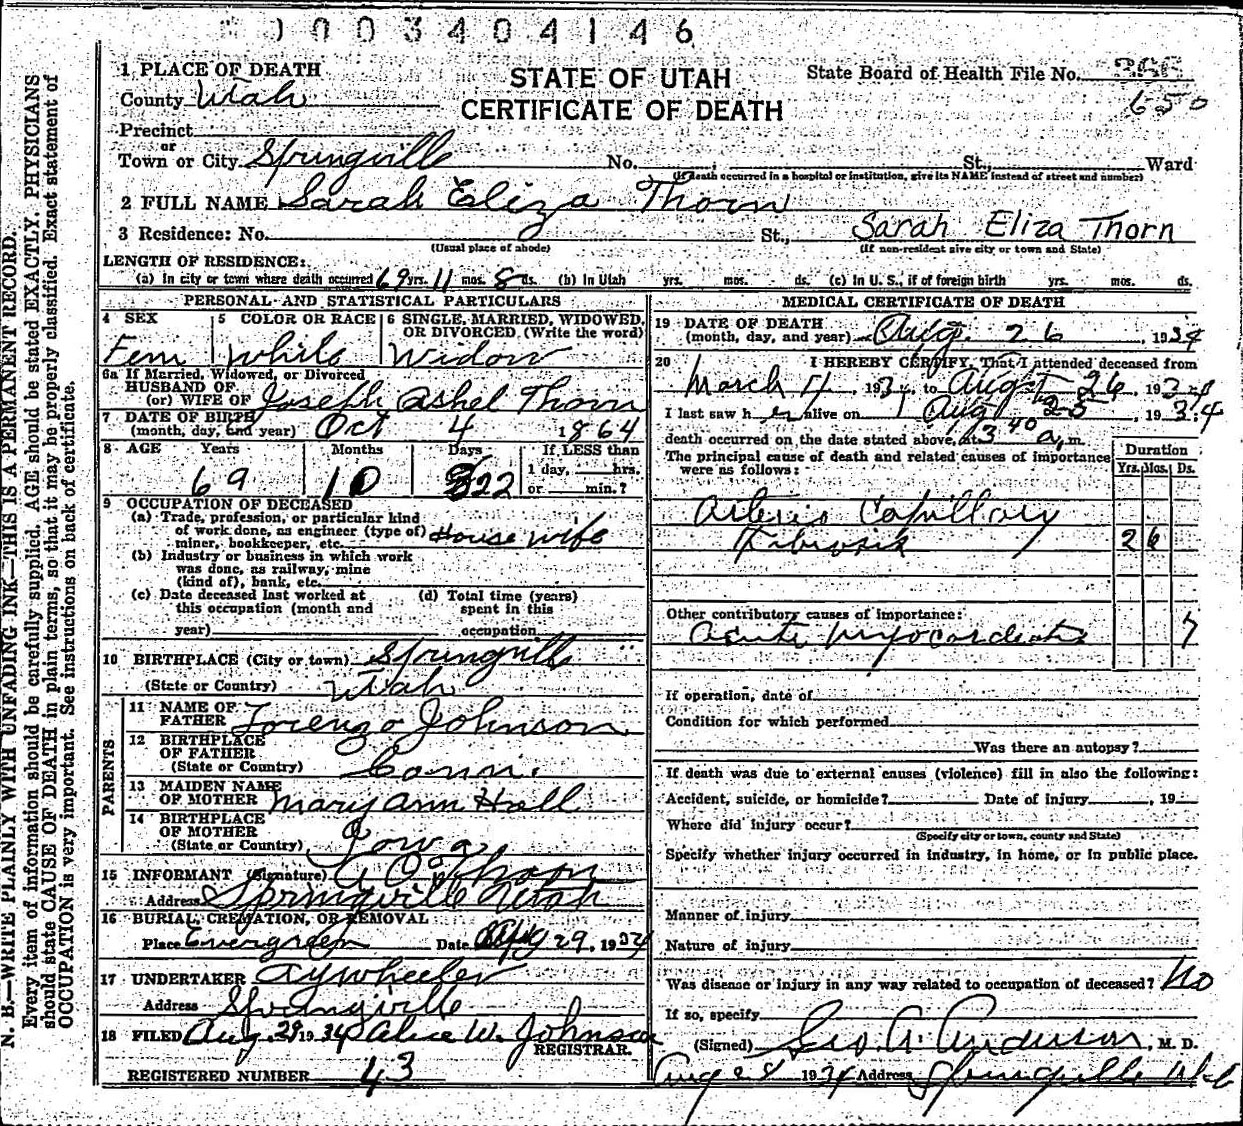 0003404146
1 PLACE OF DEATH
STATE OF UTAH
CERTIFICATE OF DEATH
State Board of Health File No.
650
County Utah
Precinct
or
Town or City Springville No. St., Ward
(If death occurred in a hospital or institution, give its NAME instead of street and number)
2 FULL NAME Sarah Eliza Thorn
3 Residence: No. St., Sarah Eliza Thorn
(Usual place of abode) (If non-resident give city or town and State)
LENGTH OF RESIDENCE:
(a) In city or town where death occurred 69 yrs. 11 mos. 8 ds. (b) In Utah yrs. mos. ds. (c) In U. S., if of foreign birth yrs. mos. ds.
PERSONAL AND STATISTICAL PARTICULARS
4 SEX 5 COLOR OR RACE 6 SINGLE, MARRIED, WIDOWED, OR DIVORCED (Write the word)
Fem White Widow
6a If Married, Widowed, or Divorced
HUSBAND OF
(or) WIFE OF Joseph Ashel Thorn
7 DATE OF BIRTH
(month, day, and year) Oct 4 1864
8 AGE Years Months Days If LESS than
1 day, hrs.
or min.?
69 10 22
9 OCCUPATION OF DECEASED
(a) Trade, profession, or particular kind
of work done, as engineer (type of)
miner, bookkeeper, etc. House wife
(b) Industry or business in which work
was done, as railway, mine
(kind of), bank, etc.
(c) Date deceased last worked at
this occupation (month and
year)
(d) Total time (years)
spent in this
occupation
10 BIRTHPLACE (City or town) Springville
(State or Country) Utah
PARENTS
11 NAME OF
FATHER Lorenzo Johnson
12 BIRTHPLACE
OF FATHER
(State or Country) Conn.
13 MAIDEN NAME
OF MOTHER Mary Ann Hall
14 BIRTHPLACE
OF MOTHER
(State or Country) Iowa
15 INFORMANT (Signature) Thorn
Address Springville Utah
16 BURIAL, CREMATION, OR REMOVAL
Place Evergreen Date Aug 29, 1934
17 UNDERTAKER A Y Wheeler
Address Springville
18 FILED Aug. 29 1934 Alice W. Johnson
REGISTRAR.
REGISTERED NUMBER 43
MEDICAL CERTIFICATE OF DEATH
19 DATE OF DEATH
(month, day, and year) Aug. 26, 1934
20 I HEREBY CERTIFY, That I attended deceased from
March 17, 1934, to August 26, 1934
I last saw her alive on Aug 25, 1934
death occurred on the date stated above, at 3 40 a. m.
The principal cause of death and related causes of importance
were as follows:
Duration
Yrs. Mos. Ds.
Arterio Capillary
Fibrosis 2 6
Other contributory causes of importance:
Acute Myocarditis 7
If operation, date of
Condition for which performed
Was there an autopsy?
If death was due to external causes (violence) fill in also the following:
Accident, suicide, or homicide? Date of injury , 19
Where did injury occur?
(Specify city or town, county and State)
Specify whether injury occurred in industry, in home, or in public place.
Manner of injury
Nature of injury
Was disease or injury in any way related to occupation of deceased? No
If so, specify
(Signed) Geo. A. Anderson, M. D.
Aug 28 1934 Address Springville Utah
N. B.—WRITE PLAINLY WITH UNFADING INK—THIS IS A PERMANENT RECORD.
Every item of information should be carefully supplied. AGE should be stated EXACTLY. PHYSICIANS
should state CAUSE OF DEATH in plain terms, so that it may be properly classified. Exact statement of
OCCUPATION is very important. See instructions on back of certificate.